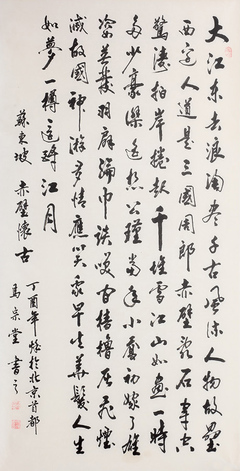 大江东去浪淘尽千古风流人物故垒
西边人道是三国周郎赤壁乱石穿空
惊涛拍岸卷起千堆雪江山如画一时
多少豪杰遥想公瑾当年小乔初嫁了雄
姿英发羽扇纶巾谈笑间樯橹灰飞烟
灭故国神游多情应笑我早生华发人生
如梦一樽还酹江月
苏东坡 赤壁怀古
丁酉年 於北京首都
马宗堂书之